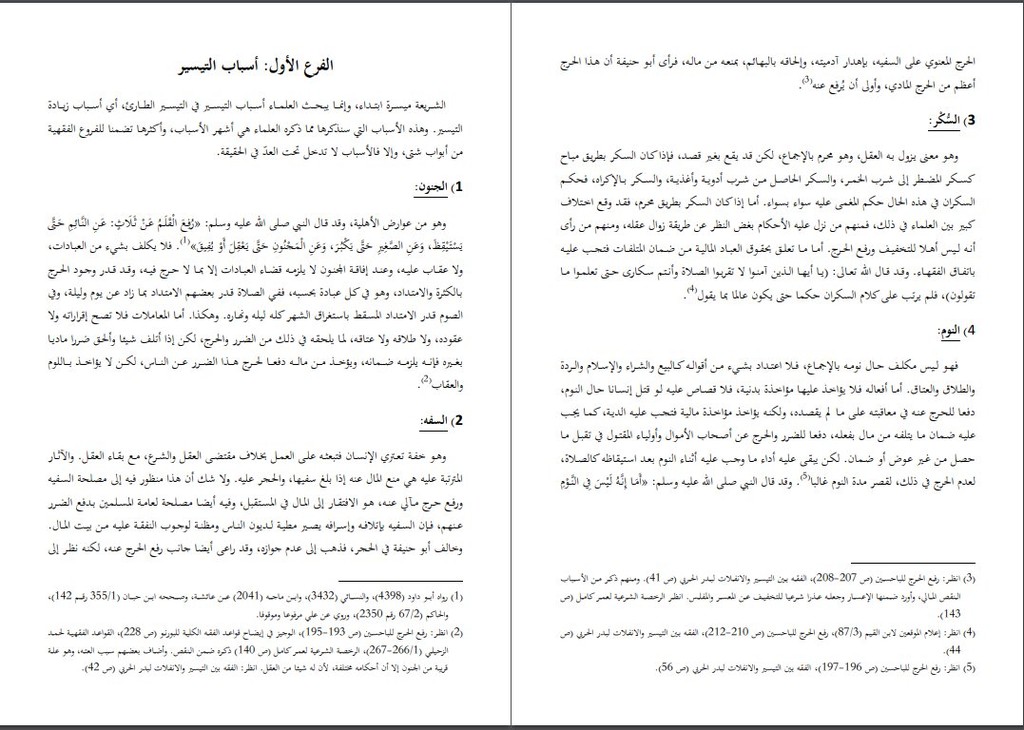 الفرع الأول: أسباب التيسير
الشريعة ميسرة ابتداء، وإنما يبحث العلماء أسباب التيسير في التيسير الطارئ، أي أسباب زيادة
التيسير. وهذه الأسباب التي سنذكرها مما ذكره العلماء هي أشهر الأسباب، وأكثرها تضمنا للفروع الفقهية
من أبواب شتى، وإلا فالأسباب لا تدخل تحت العدّ في الحقيقة.
1) الجنون:
وهو من عوارض الأهلية، وقد قال النبي صلى الله عليه وسلم: «رُفِعَ الْقَلَمُ عَنْ ثَلَاثٍ: عَنِ النَّائِمِ حَتَّى
يَسْتَيْقِظَ، وَعَنِ الصَّغِيرِ حَتَّى يَكْبَرَ، وَعَنِ الْمَجْنُونِ حَتَّى يَعْقِلَ أَوْ يُفِيقَ»(1). فلا يكلف بشيء من العبادات،
ولا عقاب عليه، وعند إفاقة المجنون لا يلزمه قضاء العبادات إلا بما لا حرج فيه، وقد قدر وجود الحرج
بالكثرة والامتداد، وهو في كل عبادة بحسبه، ففي الصلاة قدر بعضهم الامتداد بما زاد عن يوم وليلة، وفي
الصوم قدر الامتداد المسقط باستغراق الشهر كله ليله ونهاره. وهكذا. أما المعاملات فلا تصح إقراراته ولا
عقوده، ولا طلاقه ولا عتاقه، لما يلحقه في ذلك من الضرر والحرج، لكن إذا أتلف شيئا وألحق ضررا ماديا
بغيره فإنه يلزمه ضمانه، ويؤخذ من ماله دفعا لحرج هذا الضرر عن الناس، لكن لا يؤاخذ باللوم
والعقاب(2).
2) السفه:
وهو خفة تعتري الإنسان فتبعثه على العمل بخلاف مقتضى العقل والشرع، مع بقاء العقل. والآثار
المترتبة عليه هي منع المال عنه إذا بلغ سفيها، والحجر عليه. ولا شك أن هذا منظور فيه إلى مصلحة السفيه
ورفع حرج مآلي عنه، هو الافتقار إلى المال في المستقبل، وفيه أيضا مصلحة لعامة المسلمين بدفع الضرر
عنهم، فإن السفيه بإتلافه وإسرافه يصير مطية لديون الناس ومظنة لوجوب النفقة عليه من بيت المال.
وخالف أبو حنيفة في الحجر، فذهب إلى عدم جوازه، وقد راعى أيضا جانب رفع الحرج عنه، لكنه نظر إلى
(1) رواه أبو داود (4398)، والنسائي (3432)، وابن ماجه (2041) عن عائشة، وصححه ابن حبان (355/1 رقم 142)،
والحاكم (67/2 رقم 2350)، وروي عن علي مرفوعا وموقوفا.
(2) انظر: رفع الحرج للباحسين (ص 193-195)، الوجيز في إيضاح قواعد الفقه الكلية للبورنو (ص 228)، القواعد الفقهية لمحمد
الزحيلي (266/1-267)، الرخصة الشرعية لعمر كامل (ص 140) ذكره ضمن النقص. وأضاف بعضهم سبب العته، وهو علة
قريبة من الجنون إلا أن أحكامه مختلفة، لأن له شيئا من العقل. انظر: الفقه بين التيسير والانفلات لبدر الحربي (ص 42).
الحرج المعنوي على السفيه، بإهدار آدميته، وإلحاقه بالبهائم، بمنعه من ماله، فرأى أبو حنيفة أن هذا الحرج
أعظم من الحرج المادي، وأولى أن يُرفع عنه(3).
3) السُّكْر:
وهو معنى يزول به العقل، وهو محرم بالإجماع، لكن قد يقع بغير قصد، فإذا كان السكر بطريق مباح
كسكر المضطر إلى شرب الخمر، والسكر الحاصل من شرب أدوية وأغذية، والسكر بالإكراه، فحكم
السكران في هذه الحال حكم المغمى عليه سواء بسواء. أما إذا كان السكر بطريق محرم، فقد وقع اختلاف
كبير بين العلماء في ذلك، فمنهم من نزل عليه الأحكام بغض النظر عن طريقة زوال عقله، ومنهم من رأى
أنه ليس أهلا للتخفيف ورفع الحرج. أما ما تعلق بحقوق العباد المالية من ضمان المتلفات فتجب عليه
باتفاق الفقهاء. وقد قال الله تعالى: (يا أيها الذين آمنوا لا تقربوا الصلاة وأنتم سكارى حتى تعلموا ما
تقولون)، فلم يرتب على كلام السكران حكما حتى يكون عالما بما يقول(4).
4) النوم:
فهو ليس مكلف حال نومه بالإجماع، فلا اعتداد بشيء من أقواله كالبيع والشراء والإسلام والردة
والطلاق والعتاق. أما أفعاله فلا يؤاخذ عليها مؤاخذة بدنية، فلا قصاص عليه لو قتل إنسانا حال النوم،
دفعا للحرج عنه في معاقبته على ما لم يقصده، ولكنه يؤاخذ مؤاخذة مالية فتجب عليه الدية، كما يجب
عليه ضمان ما يتلفه من مال بفعله، دفعا للضرر والحرج عن أصحاب الأموال وأولياء المقتول في تقبل ما
حصل من غير عوض أو ضمان. لكن يبقى عليه أداء ما وجب عليه أثناء النوم بعد استيقاظه كالصلاة،
لعدم الحرج في ذلك، لقصر مدة النوم غالبا(5). وقد قال النبي صلى الله عليه وسلم: «أَمَا إِنَّهُ لَيْسَ فِي النَّوْمِ
(3) انظر: رفع الحرج للباحسين (ص 207-208)، الفقه بين التيسير والانفلات لبدر الحربي (ص 41). ومنهم ذكر من الأسباب
النقص المالي، وأورد ضمنها الإعسار وجعله عذرا شرعيا للتخفيف عن المعسر والمفلس. انظر الرخصة الشرعية لعمر كامل (ص
143).
(4) انظر: إعلام الموقعين لابن القيم (87/3)، رفع الحرج للباحسين (ص 210-212)، الفقه بين التيسير والانفلات لبدر الحربي (ص
44).
(5) انظر: رفع الحرج للباحسين (ص 196-197)، الفقه بين التيسير والانفلات لبدر الحربي (ص 56).